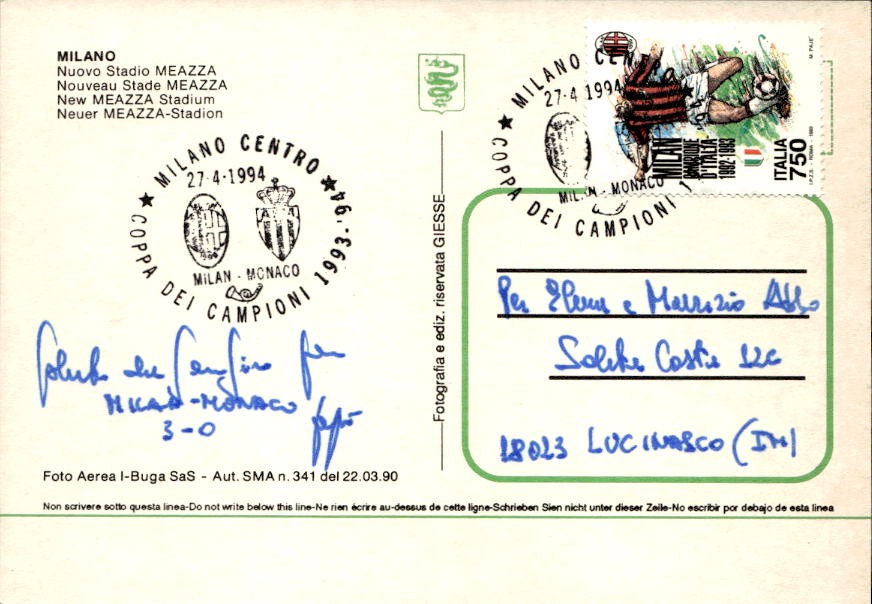 MILANO
Nuovo Stadio MEAZZA
Nouveau Stade MEAZZA
New MEAZZA Stadium
Neuer MEAZZA-Stadion
★ MILANO CENTRO ★
27-4-1994
MILAN - MONACO
COPPA DEI CAMPIONI 1993-'94
★ MILANO CEN
27-4 1994
MILAN - MONACO
COPPA DEI CAMPIONI 1
MILAN
D'ITALIA
1992-1993
ITALIA
750
I.P.Z.S. - ROMA - 1993
Fotografia e ediz. riservata GIESSE
Per Elena e Maurizio Abbo
18023 LUCINASCO (IM)
MILAN-MONACO
3-0
Foto Aerea I-Buga SaS - Aut. SMA n. 341 del 22.03.90
Non scrivere sotto questa linea-Do not write below this line-Ne rien écrire au-dessus de cette ligne-Schrieben Sien nicht unter dieser Zeile-No escribir por debajo de esta linea